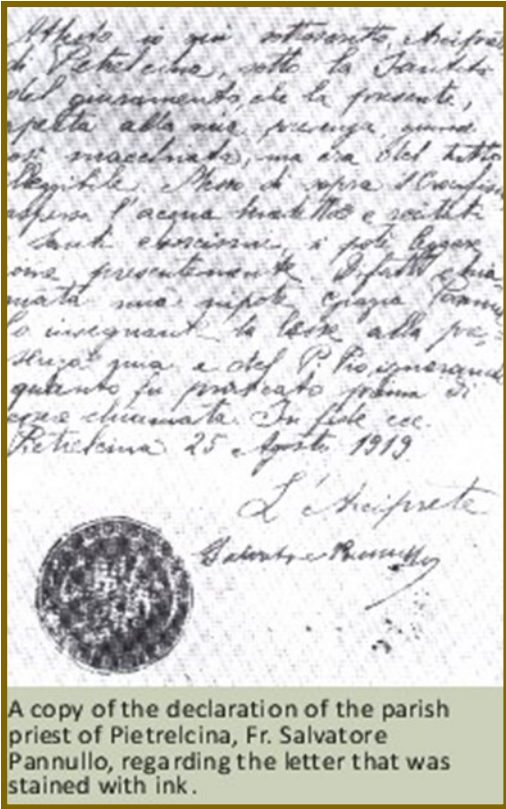 Attesto io qui sottoscritto, Arciprete
di Pietrelcina, sotto la Santità
del giuramento, che la presente,
aperta alla mia presenza,
macchiata, ma era del tutto
illeggibile. Messo di sopra il Crocifisso
asperso l'acqua e recitati
santi esorcismi, si potè leggere
come presentemente Difatti chia-
mata mia nipote Grazia Pannul-
lo insegnante la lesse alla pre-
senza mia e del P. Pio, ignorando
quanto fu praticato prima di
chiamata. In fede ecc.
Pietrelcina 25 Agosto 1919
L'Arciprete
Salvatore Pannullo
A copy of the declaration of the parish
priest of Pietrelcina, Fr. Salvatore
Pannullo, regarding the letter that was
stained with ink.